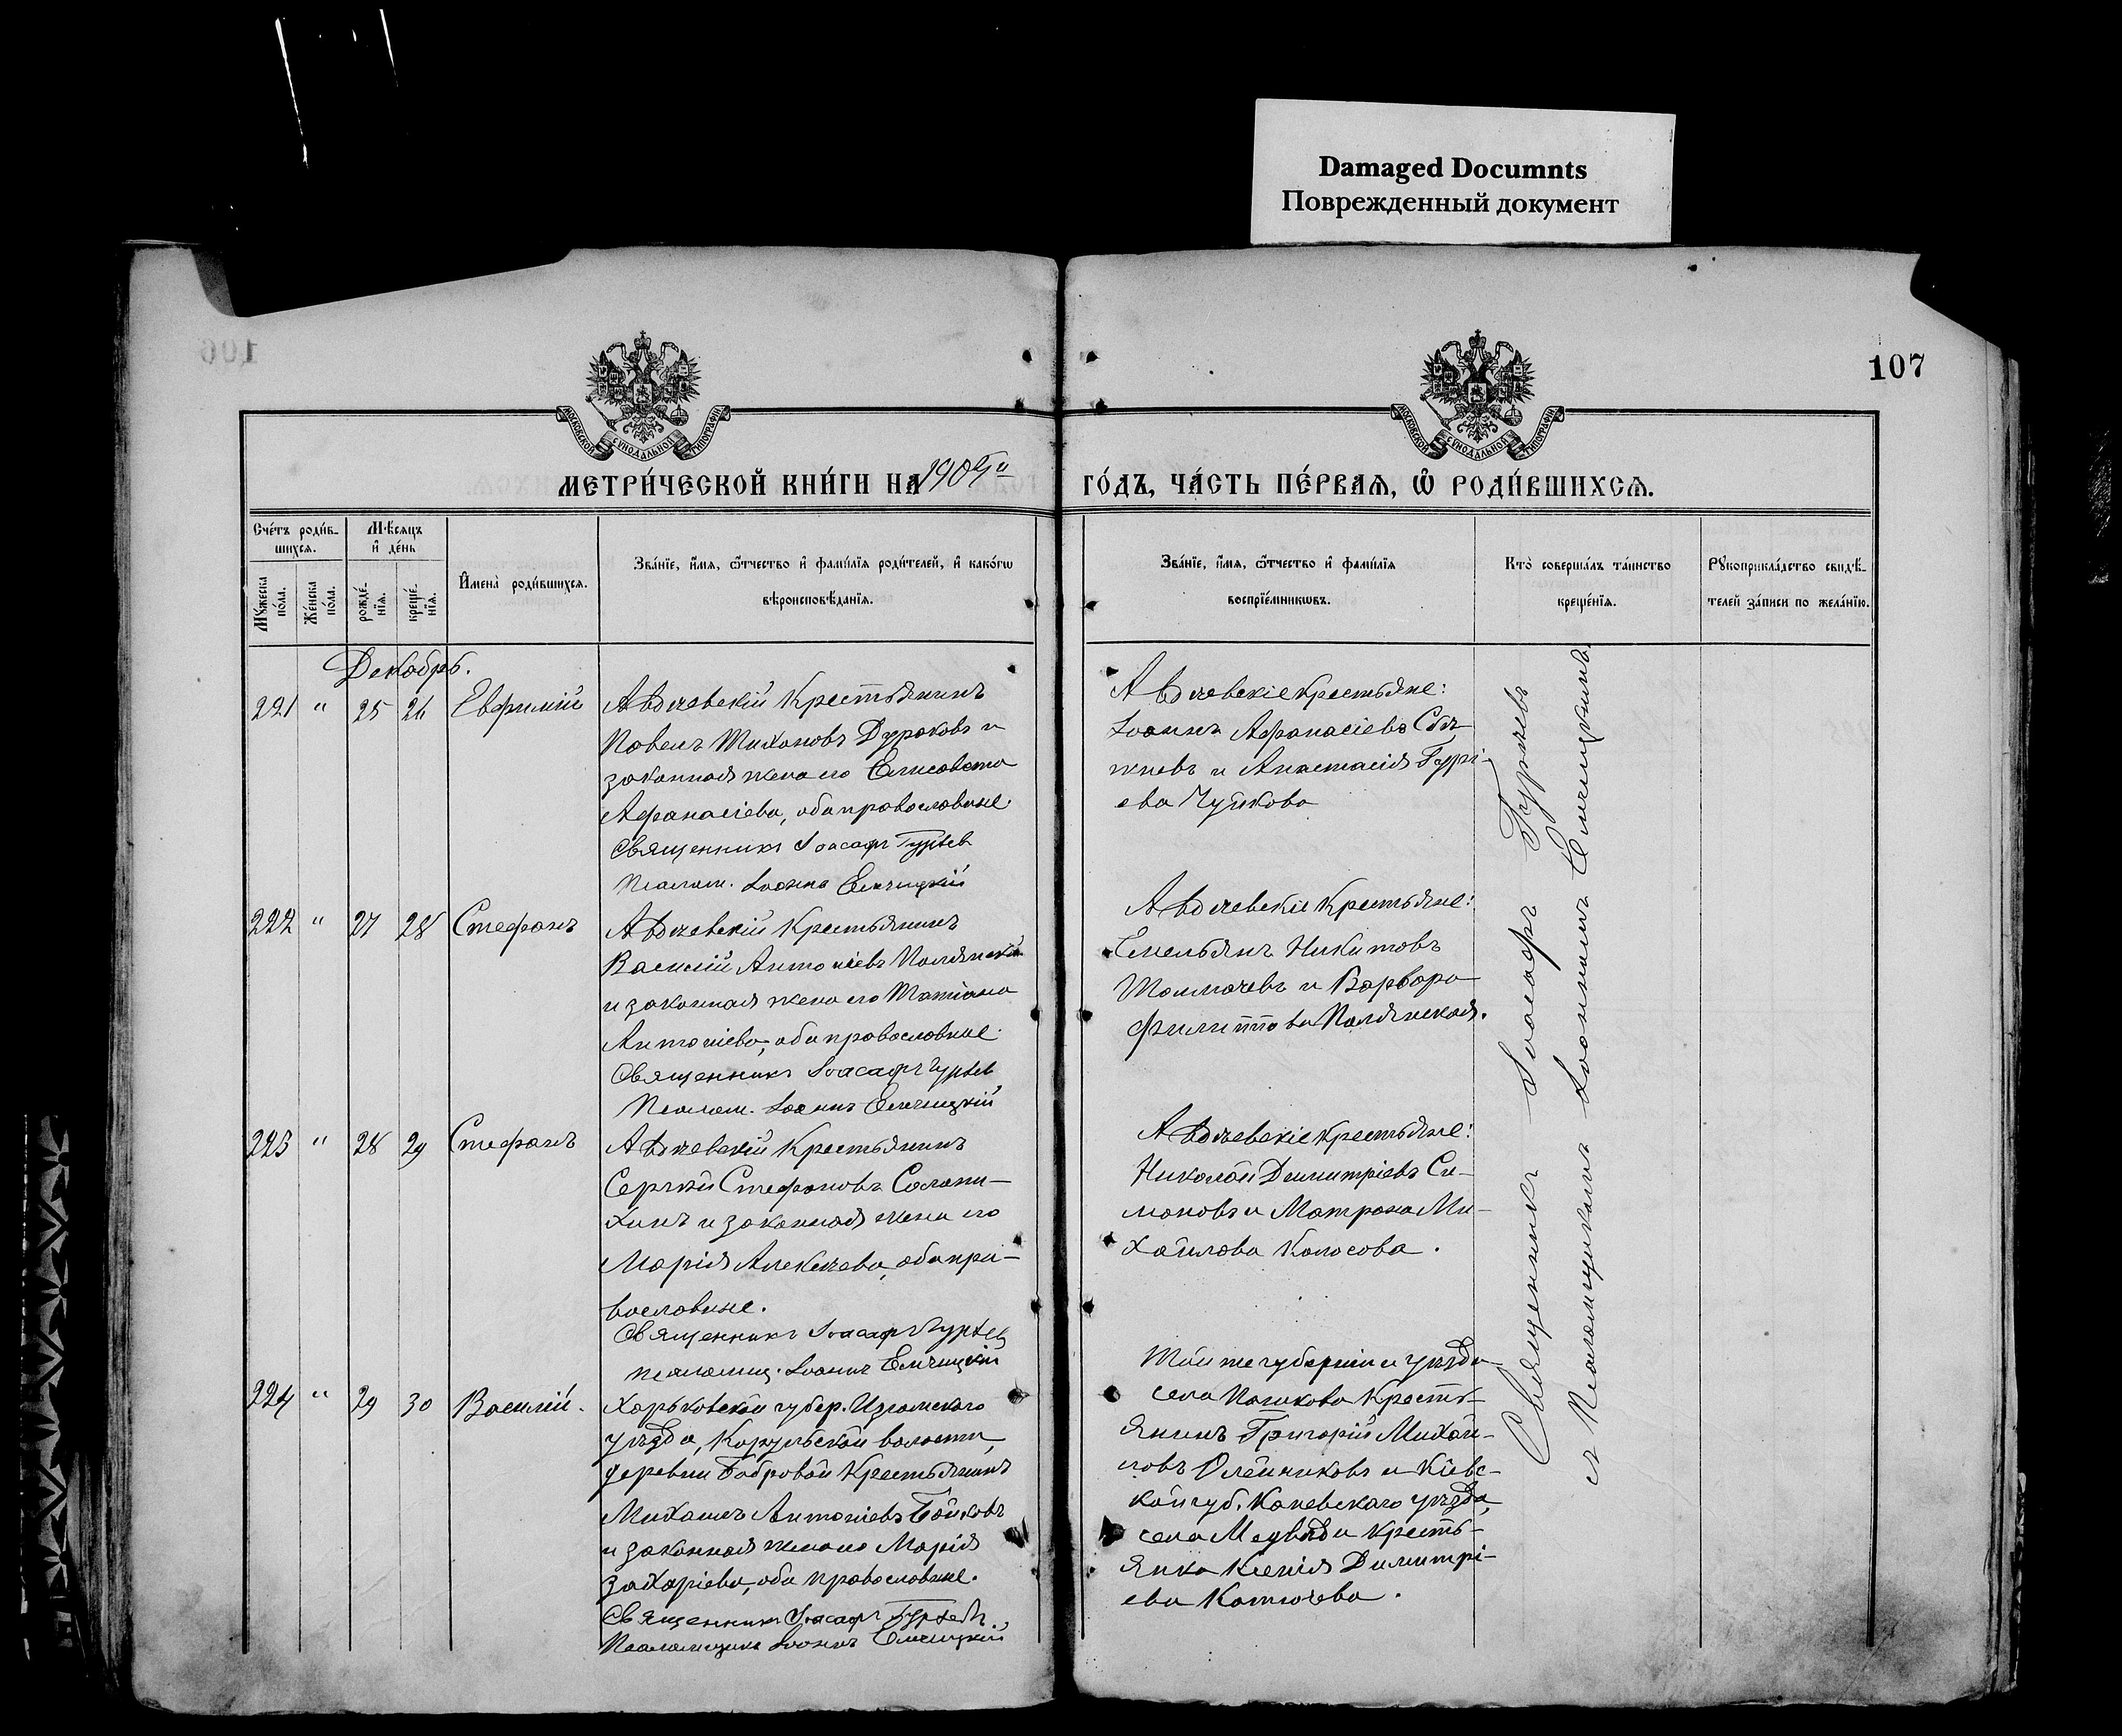 Damaged Documnts
Поврежденный документ
106
107
МОСКОВСКОЙ СѴНОДАЛЬНОЙ ТИПОГРАФІИ
МОСКОВСКОЙ СѴНОДАЛЬНОЙ ТИПОГРАФІИ
МЕТРИ́ЧЕСКОЙ КНИ́ГИ НА 1905й
ГО́ДЪ, ЧА́СТЬ ПЕ́РВАѦ, Ѽ РОДИ́ВШИХСѦ.
Сче́тъ роди́в-
шихсѧ.
Мѣсѧцъ
и҆ де́нь
Мꙋ́жеска
по́ла.
Же́нска
по́ла.
рожде́-
нїѧ.
креще́-
нїѧ.
И҆мена̀ роди́вшихсѧ.
Зва́нїе, и҆́мѧ, ѻ҆́тчество и҆ фами́лїѧ роди́телей, и҆ како́гѡ
вѣроисповѣ́данїѧ.
Зва́нїе, и҆́мѧ, ѻ҆́тчество и҆ фами́лїѧ
воспрїе́мникѡвъ.
Кто̀ соверша́лъ та́инство
креще́нїѧ.
Рꙋкоприкла́дство свидѣ́-
телей за́писи по жела́нїю.
Декабрь.
221 " 25 26 Евфимій
Авдѣевскій крестьянинъ
Павелъ Тихоновъ Дураковъ и
законная жена его Елисавета
Афанасіева, оба православные
Священникъ Іоасафъ Гурьев
Псалом. Іоаннъ Елчицкій
Авдѣевскіе крестьяне:
Іоаннъ Афанасіевъ Сѣ
жневъ и Анастасія Гурі-
ева Чуйкова
222 " 27 28 Стефанъ
Авдѣевскій крестьянинъ
Василій Антоніевъ Полянскій
и законная жена его Татіана
Антоніева, оба православные
Священникъ Іоасафъ Гурьев
Псалом. Іоаннъ Елчицкій
Авдѣевскіе крестьяне:
Емельянъ Никитовъ
Толмачевъ и Варвара
Филиппова Полянская.
223 " 28 29 Стефанъ
Авдѣевскій крестьянинъ
Сергѣй Стефановъ Солопи-
хинъ и законная жена его
Марія Алексѣева, оба пра-
вославные.
Священникъ Іоасафъ Гурьев
псаломщ. Іоаннъ Елчицкій
Авдѣевскіе крестьяне:
Николай Димитріевъ Си-
моновъ и Матрона Ми-
хайлова Колосова.
224 " 29 30 Василій.
Харьковской губер. Изюмскаго
уѣзда, Корульской волости,
деревни Бобровой крестьянинъ
Михаилъ Антоніевъ Бойковъ
и законная жена его Марія
Захаріева, оба православные.
Священникъ Іоасафъ Гурьевъ
Псаломщикъ Іоаннъ Елчицкій
Той же губерніи и уѣзда
села Пашкова кресть-
янинъ Григорій Михай-
ловъ Олейниковъ и Кіевс-
кой губ. Каневскаго уѣзда,
села Медвѣди кресть-
янка Ксенія Димитрі-
ева Катючева.
Священникъ Іоасафъ Гурьевъ
съ Псаломщикомъ Іоанномъ Елчицкимъ